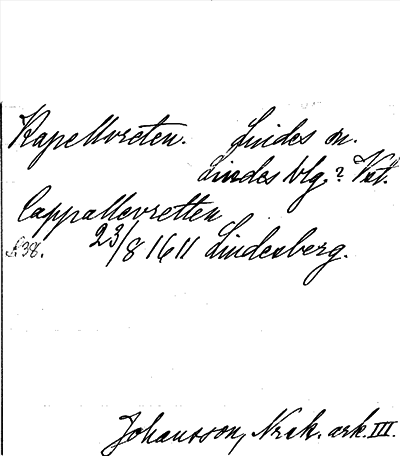 Kapellvreten. Lindes sn.
Lindes blg? Vstm.
Cappallevretten
£38. 23/8 1611 Lindesberg.
Johansson, Nrak. ark. III.